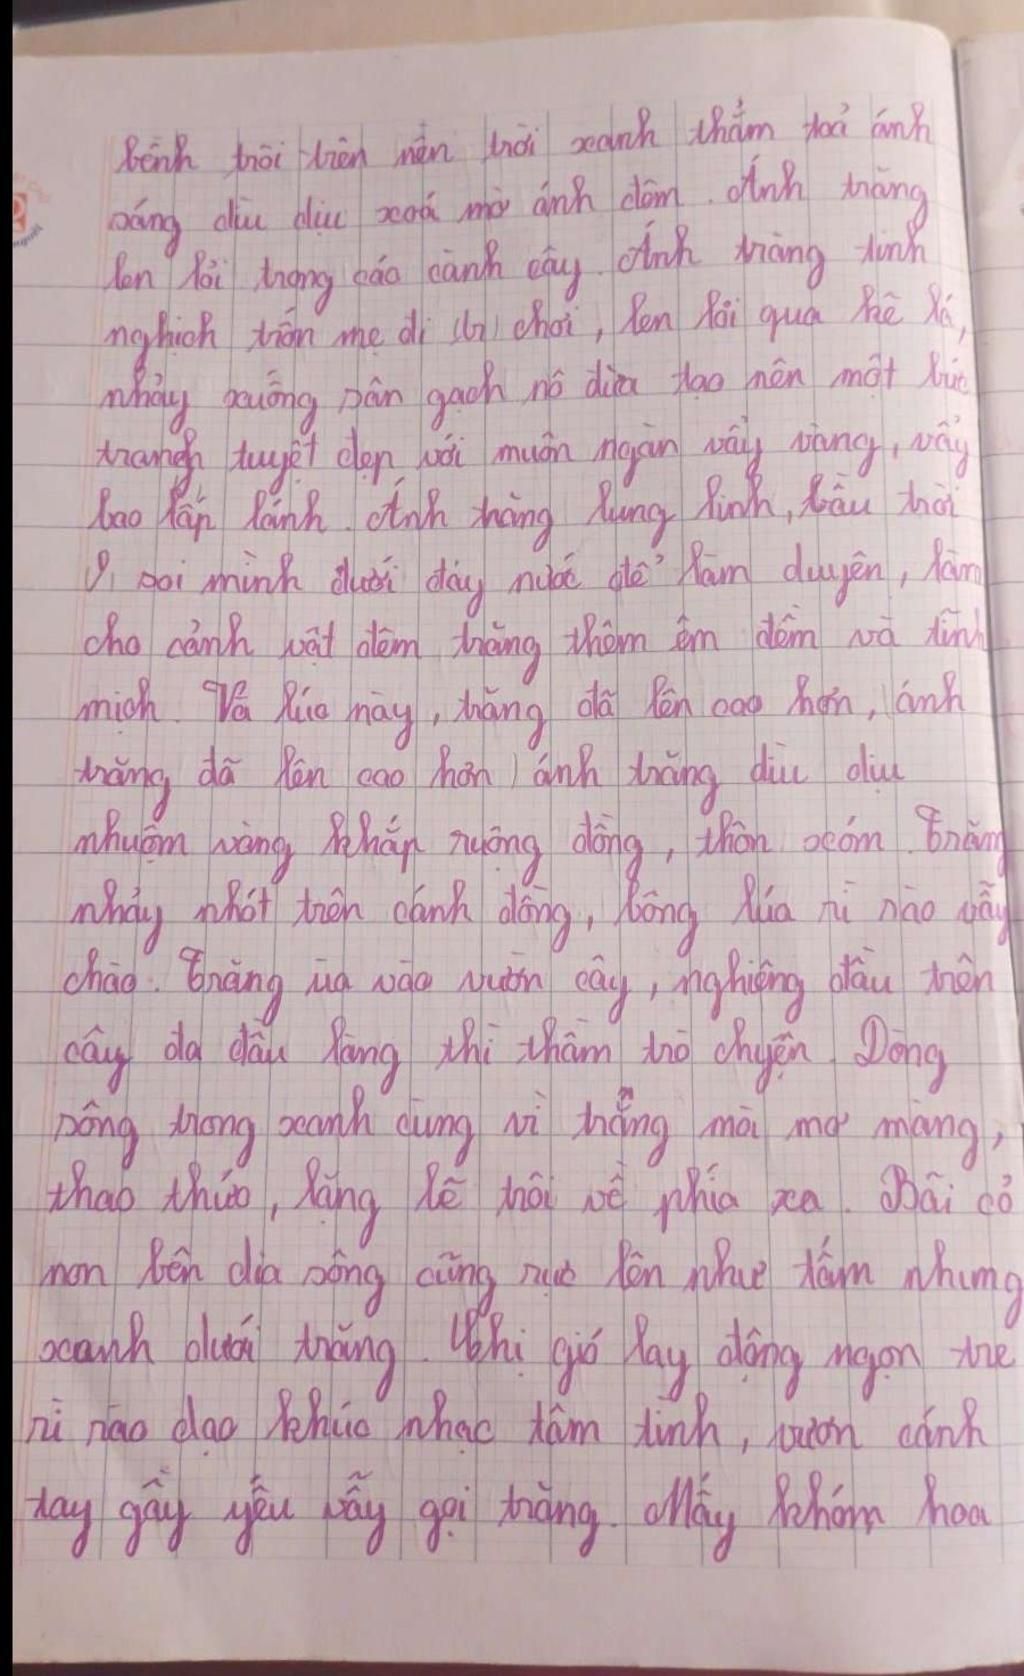 bềnh trôi trên nền trời xanh thẳm toả ánh
sáng dìu dịu xoá mờ ánh đêm. Ánh trăng
len lỏi trong các cành cây. Ánh trăng tinh
nghịch trốn mẹ đi chơi, len lỏi qua kẽ lá,
nhảy xuống sân gạch nô đùa tạo nên một bức
tranh tuyệt đẹp với muôn ngàn vảy vàng, vảy
bạc lấp lánh. Ánh trăng lung linh, bầu trời
soi mình dưới đáy nước để làm duyên, làm
cho cảnh vật đêm trăng thêm êm đềm và tĩnh
mịch. Và lúc này, trăng đã lên cao hơn, ánh
trăng đã lên cao hơn ánh trăng dìu dịu
nhuộm vàng khắp ruộng đồng, thôn xóm. Trăng
nhảy nhót trên cánh đồng, bông lúa rì rào vẫy
chào. Trăng ùa vào vườn cây, nghiêng đầu trên
cây đa đầu làng thì thầm trò chuyện. Dòng
sông trong xanh cũng vì trăng mài mơ màng,
thao thức, lặng lẽ trôi về phía xa. Bãi cỏ
non bên dìa sông cũng rực lên như tấm nhung
xanh dưới trăng. Khi gió lay động ngọn tre
rì rào dạo khúc nhạc tâm tình, vươn cánh
tay gầy yếu vẫy gọi trăng. Mấy khóm hoa